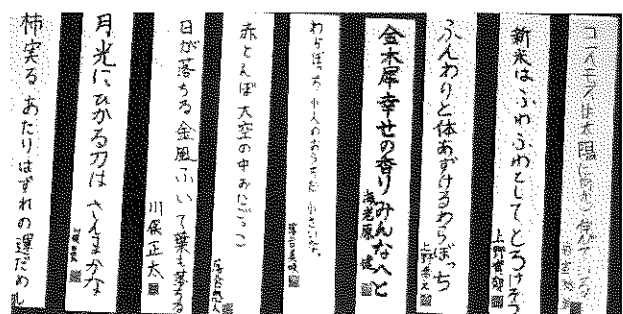 コスモスは太陽に向かい伸びて
新米はふわふわとしてとろけそう
上野
ふんわりと体あずけるわらぼっち
上野
金木犀幸せの香りみんなへと
海老原 健
わらぼっち小人のおうちだ小さいな
赤とんぼ大空の中おにごっこ
日が落ちる金風ふいて葉も落ちる
川俣正太
月光にひかる刀はさんまかな
柿実るあたりはずれの運だめし